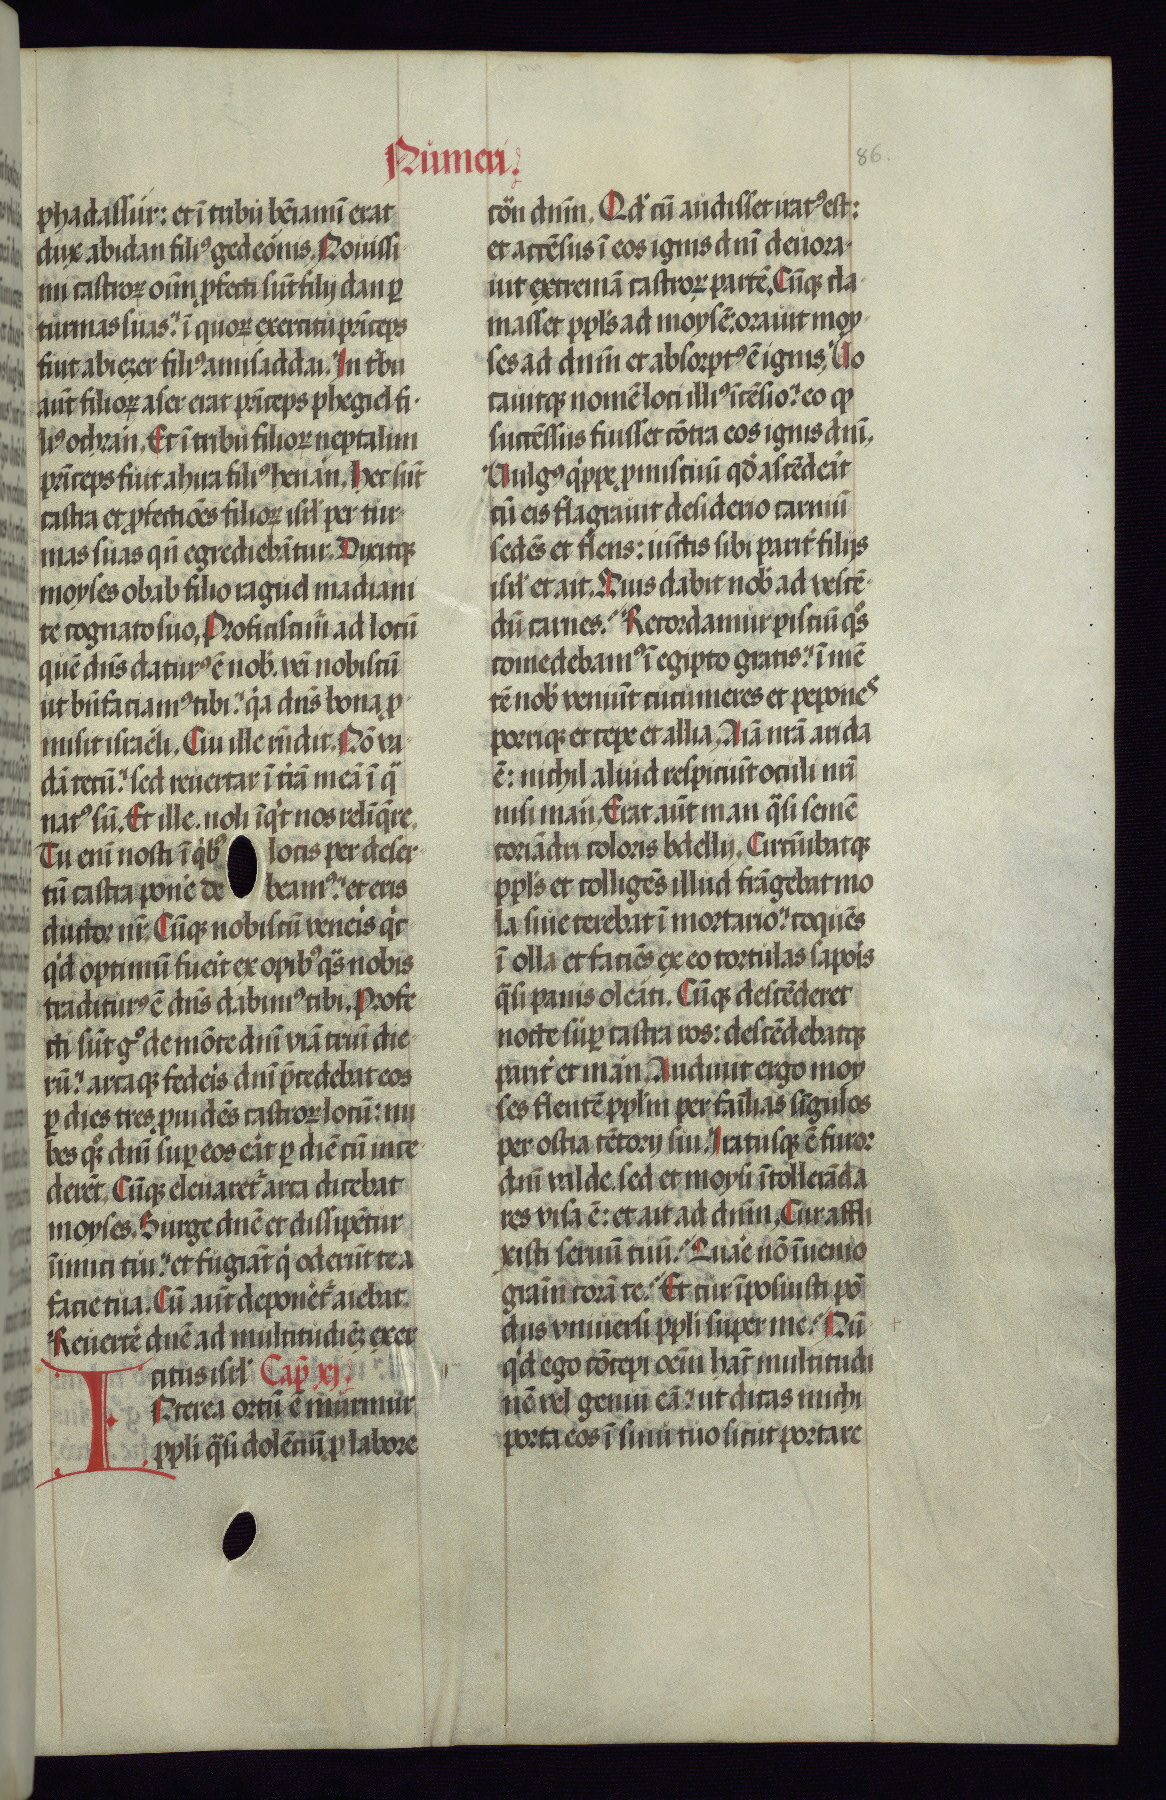 Numeri.
86.
phadassur: et ī tribu bēiamī erat
dux abidan filiꝰ gedeonis. Nouissi
mi castroꝝ oīm ꝓfecti sūt filij dan ꝑ
turmas suas: ī quoꝝ exercitu prīceps
fuit abiezer filiꝰ amisaddai. In tbu
aūt filioꝝ aser erat prīceps phegiel fi-
liꝰ ochran. Et ī tribu filioꝝ neptalim
prīceps fuit ahira filiꝰ henan. Hec sūt
castra et ꝓfectiōes filioꝝ isrl per tur-
mas suas qn̄ egrediebātur. Dixitqꝫ
moyses obab filio raguel madiani
te cognato suo, Proficiscim̄ ad locū
quē dn̄s daturꝰ ē nob. veni nobiscū
ut bn̄faciamꝰ tibi: qa dn̄s bona ꝓ
misit israeli. Cui ille rn̄dit. Nō va
dā tecū: sed reuertar ī trā meā ī q
natꝰ sū. Et ille. noli īqt nos relīqre.
Tu eni nosti ī qbꝰ locis per deser
tū castra pone de beamꝰ: et eris
ductor nr̄. Cūqꝫ nobiscū veneis qc
qd optimū fueit ex opibꝰ qs nobis
traditurꝰ ē dn̄s dabimꝰ tibi. Profe
cti sūt gͦ de mōte dn̄i viā triū die
rū: arcaqꝫ federis dn̄i p̄cedebat eos
ꝑ dies tres ꝓuidēs castroꝝ locū: nu
bes qꝫ dn̄i suꝑ eos eāt ꝑ diē cū ince
derēt. Cūqꝫ eleuaret arca dicebat
moyses. Surge dn̄e et dissipētur
īimici tui: et fugiāt q oderūt te a
facie tua. Cū aūt deponeret aiebat.
Reuerte dn̄e ad multitudiēꝫ exer
citus isrl Cap xj.
Interea ortū ē murmur
ppli qsi dolētiū ꝓ labore
cōn dnm. Qd cū audisset iratꝰ est:
et accēsus ī eos ignis dn̄i deuora-
uit extremā castroꝝ partē. Cūqꝫ cla
masset ppls ad moysē: orauit moy-
ses ad dnm et absorptꝰ ē ignis. Uo
cauitqꝫ nomē loci illiꝰ ītēsio: eo ꝙ
succēssus fuisset cōtra eos ignis dn̄i.
Uulgꝰ qppe ꝓmiscuū qd ascēdeāt
cū eis flagrauit desiderio carniū
sedēs et flens: iūctis sibi parit filijs
isrl et ait. Quis dabit nob ad vescē-
dū carnes? Recordamur pisciū qs
comedebamꝰ ī egipto gratis: ī mē
tē nob veniūt cucumeres et pepones
porriqꝫ et cepe et allia. Aīa nr̄a arida
ē: nichil aliud respiciūt oculi nr̄i
nisi man. Erat aūt man qsi semē
coriādri coloris bdellij. Circūibatqꝫ
ppls et colligēs illud frāgebat mo
la siue terebat ī mortario: coquēs
ī olla et faciēs ex eo tortulas sapois
qsi panis oleati. Cūqꝫ descēderet
nocte suꝑ castra ros: descēdebatqꝫ
parit et man. Audiuit ergo moy
ses flentē pplm per familias sīgulos
per ostia tētorij sui. Iratusqꝫ ē furor
dn̄i valde. sed et moysi ītolleāda
res visa ē: et ait ad dnm. Cur affli
xisti seruū tuū? Quae nō īuenio
gram̄ corā te? Et cur īposuisti pō
dus vniuersi ppli super me? Nū
qd ego cōcepi oem̄ hāc multitudi
nē vel genui eā: ut dicas michi
porta eos ī sinu tuo sicut portare